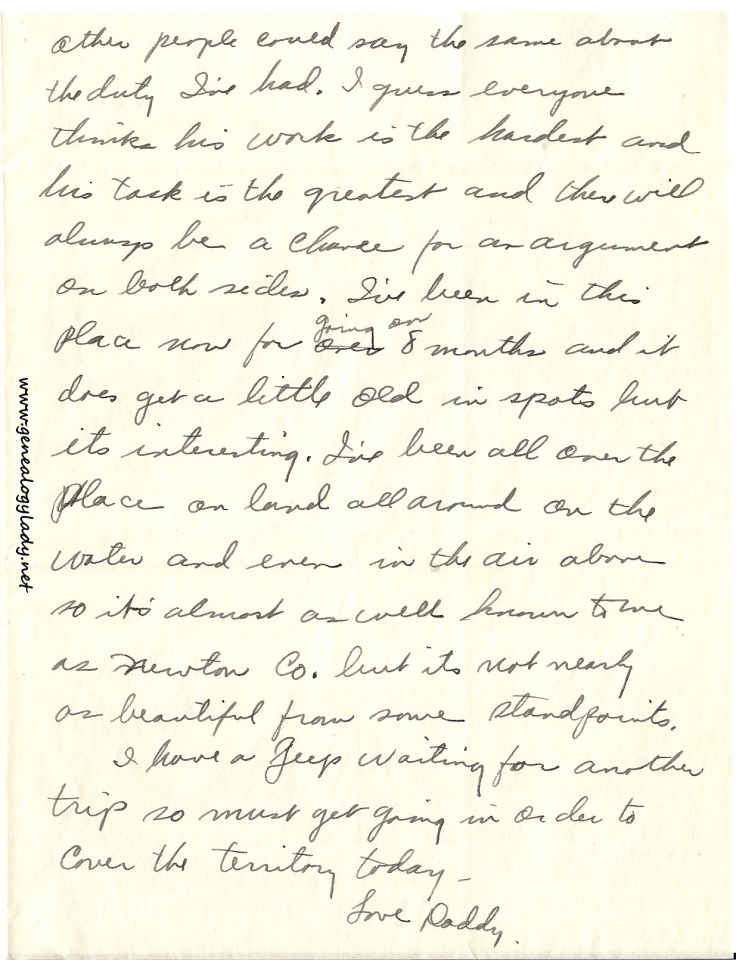 other people could say the same about
the duty I've had. I guess everyone
thinks his work is the hardest and
his task is the greatest and there will
always be a chance for an argument
on both sides. I've been in this
going on
place now for over 8 months and it
does get a little old in spots but
its interesting. I've been all over the
place on land all around on the
water and even in the air above
so it's almost as well known to me
as Newton Co. but its not nearly
as beautiful from some standpoints.
I have a Jeep waiting for another
trip so must get going in order to
cover the territory today –
Love Daddy.
www.genealogylady.net